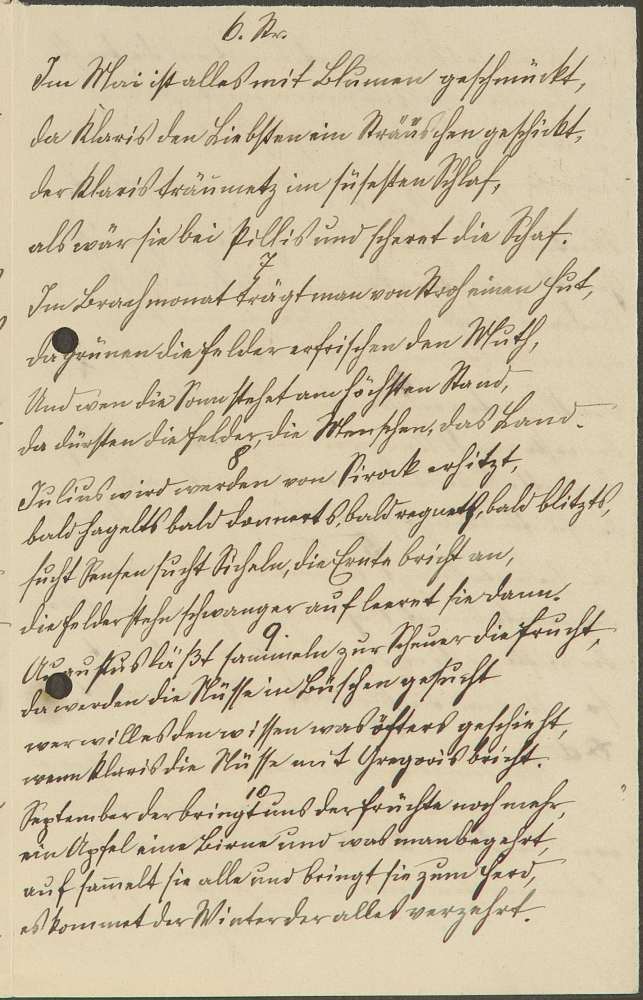 6. Str.
Im Mai ist alles mit Blumen geschmückt,
da Klaris den Liebsten ein Sträuschen geschickt,
der Klaris träumetz im süsesten Schlaf,
als wär sie bei Pillis und scheret die Schaf.
7
Im Brachmonat trägt man von Stroh einen Hut,
da grünen die Felder erfrischen den Muth,
Und wen die Sonn stehet am höchsten Stand,
da dürsten die Felder, die Menschen, das Land.
8
Julius wird werden von Sirock erhitzt,
bald hagelts bald donnerts, bald regnets, bald blitzts,
sucht Sensen sucht Sicheln, die Ernte bricht an,
die Felder stehn schwanger auf leeret sie dann.
9.
Augustus läßt sammeln zur Scheuer die Frucht,
da werden die Nüsse in Büschen gesucht
wer will es den wissen was öfters geschieht,
wenn Klaris die Nüsse mit Gregoris bricht.
10
September der bringt uns der Früchte noch mehr,
ein Apfel eine Birne und was man begehrt,
auf sam̄elt sie alle und bringt sie zum Herd,
es kommet der Winter der alles verzehrt.